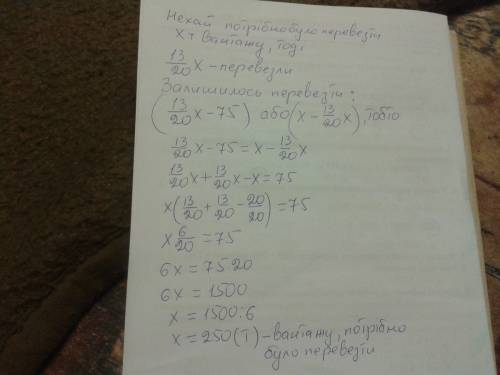 Нехай потрібно було перевезти
x т вантажу, тоді
13/20 x – перевезли
Залишилось перевезти:
(13/20 x – 75) або (x – 13/20 x), тобто
13/20 x – 75 = x – 13/20 x
13/20 x + 13/20 x – x = 75
x(13/20 + 13/20 – 20/20) = 75
x 6/20 = 75
6x = 75 20
6x = 1500
x = 1500:6
x = 250(т) – вантажу, потрібно
було перевезти